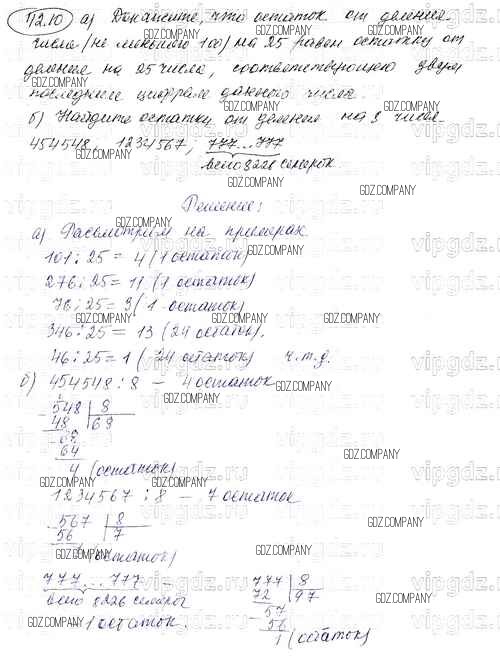 12.10 а) Докажите, что остаток от деления
числа (не меньшего 100) на 25 равен остатку от
деления на 25 числа, соответствующего двум
последним цифрам данного числа.
б) Найдите остатки от деления на 8 чисел
454548, 1234567, 777...777
всего 3226 семерок
Решение:
а) Рассмотрим на примерах
101 : 25 = 4 (1 остаток)
276 : 25 = 11 (1 остаток)
76 : 25 = 3 (1 остаток)
346 : 25 = 13 (24 остаток).
46 : 25 = 1 (24 остаток) ч.т.д.
б) 454548 : 8 – 4 остаток
548 8
48 68
68
64
4 (остаток)
1234567 : 8 – 7 остаток
567 8
56 7
(остаток)
777...777 –
всего семерок
– 1 остаток.
777 8
72 97
57
56
1 (остаток)
GDZ.COMPANY
vipgdz.ru